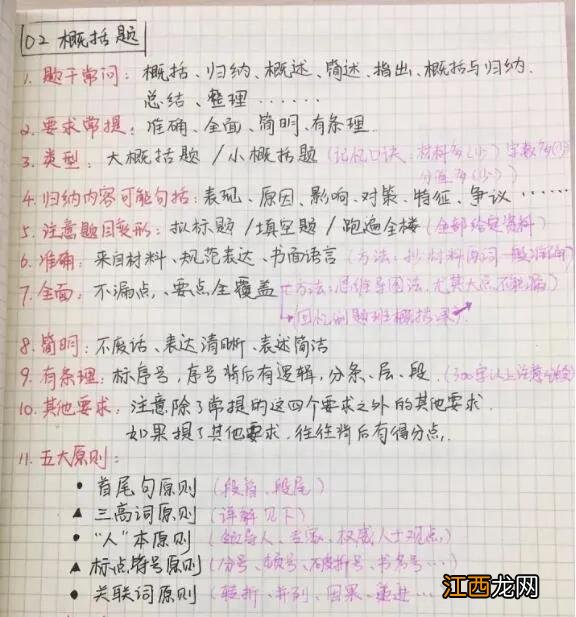 02 概括题
1. 题干常问：概括、归纳、概述、简述、指出、概括与归纳、
总结、整理……
2. 要求常提：准确、全面、简明、有条理
3. 类型：大概括题/小概括题（记忆口诀：材料多(少) 字数多(少)
分值多(少)）
4. 归纳内容可能包括：表现、原因、影响、对策、特征、争议……
5. 注意题目变形：拟标题/填空题/跑遍全楼（全部给定资料）
6. 准确：来自材料、规范表达、书面语言（方法：抄材料原词一般
7. 全面：不漏点，要点全覆盖 方法：思维导图法，尤其大点不能漏）
8. 简明：不废话、表达清晰、表述简洁
9. 有条理：标序号，序号背后有逻辑，分条、层、段.（300字以上注意
10. 其他要求：注意除了常提的这四个要求之外的其他要求.
如果提了其他要求，往往背后有得分点.
11. 五大原则：
• 首尾句原则（段首、段尾）
▲ 三高词原则（详解见下）
• "人"本原则（领导人、专家、权威人士观点）
▲ 标点符号原则（分号、顿号、破折号、书名号…）
• 关联词原则（转折、并列、因果、递进…
江西龙网